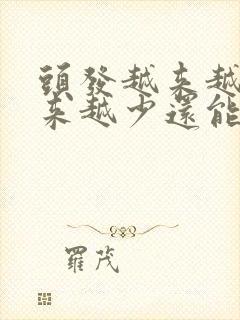 頭發越来越
来越少還能
羅茂